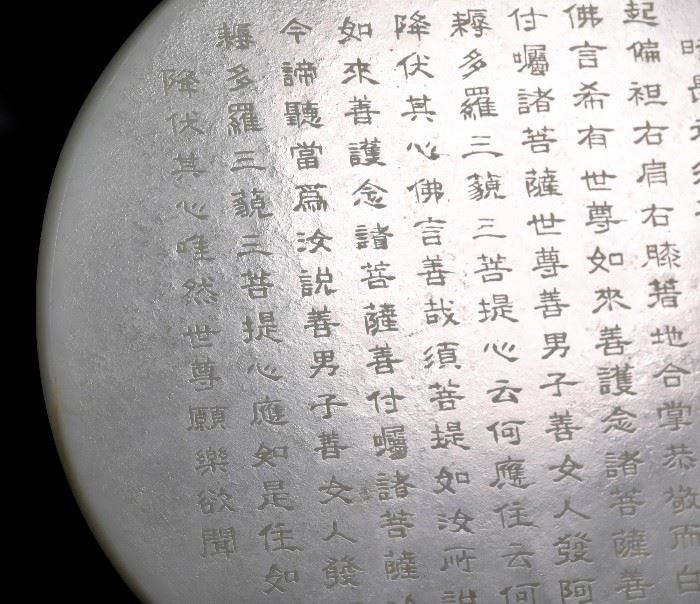 起偏袒右肩右膝著地合掌恭敬而白
佛言希有世尊如來善護念諸菩薩善
付囑諸菩薩世尊善男子善女人發阿
耨多羅三藐三菩提心云何應住云何
降伏其心佛言善哉須菩提如汝所說
如來善護念諸菩薩善付囑諸菩薩
今諦聽當爲汝說善男子善女人發
耨多羅三藐三菩提心應如是住如
降伏其心唯然世尊願樂欲聞